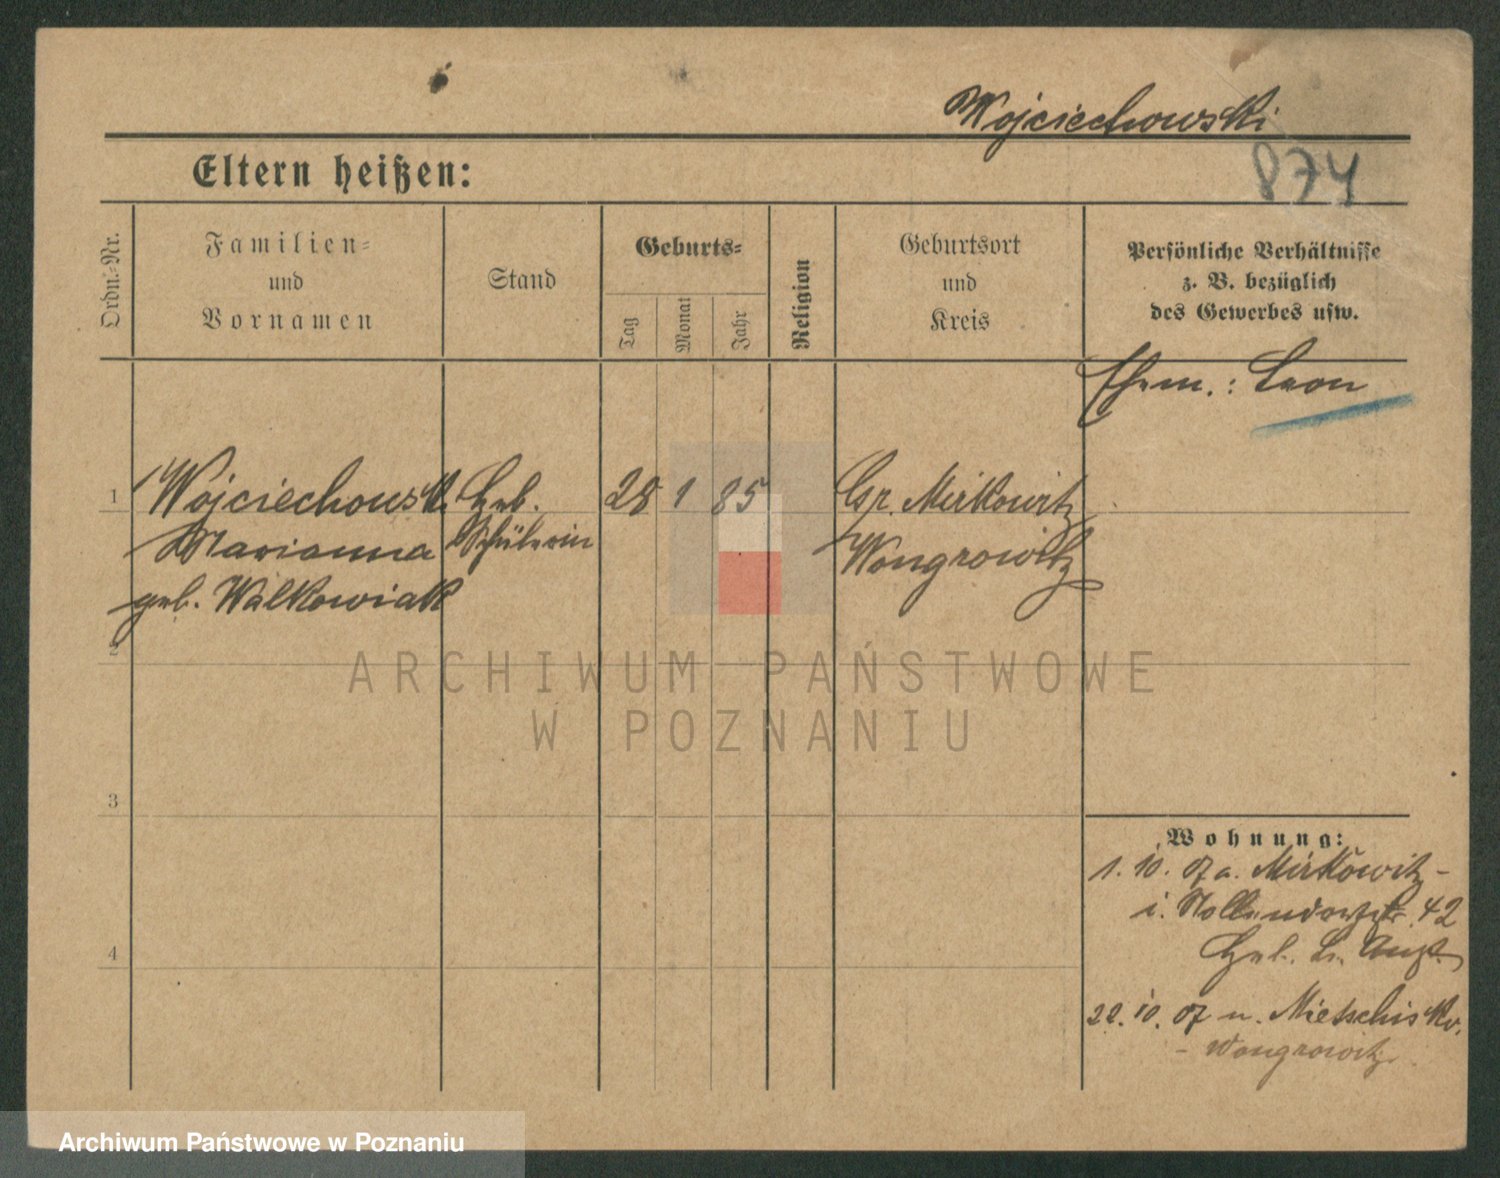 Wojciechowski
874
Eltern heißen:
Ordn.-Nr.
Familien-
und
Vornamen
Stand
Geburts-
Tag
Monat
Jahr
Religion
Geburtsort
und
Kreis
Persönliche Verhältnisse
z. B. bezüglich
des Gewerbes usw.
Ehem.: Leon
1 Wojciechowski Heb. 28 1 85 Gr. Mirkowitz
Marianna Schülerin Wongrowitz
geb. Walkowiak
2
3
4
Wohnung:
1. 10. 07 a. Mirkowitz -
i. Nollendorfstr. 42
Heb. L. Anst.
22. 10. 07 n. Mietschisko.
- Wongrowitz
ARCHIWUM PAŃSTWOWE
W POZNANIU
Archiwum Państwowe w Poznaniu